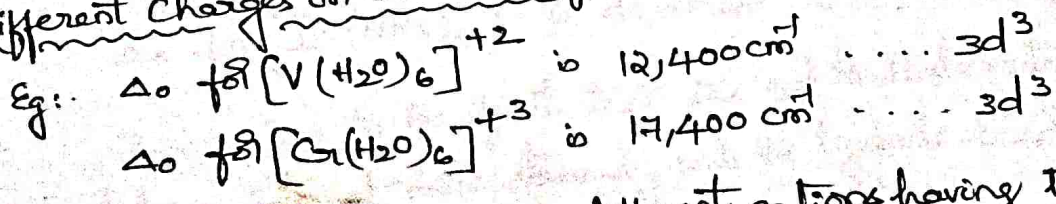 different Charges
Eg:. Δo for [V(H₂O)₆]⁺² is 12,400 cm⁻¹ .... 3d³
Δo for [Cr(H₂O)₆]⁺³ is 17,400 cm⁻¹ .... 3d³
having